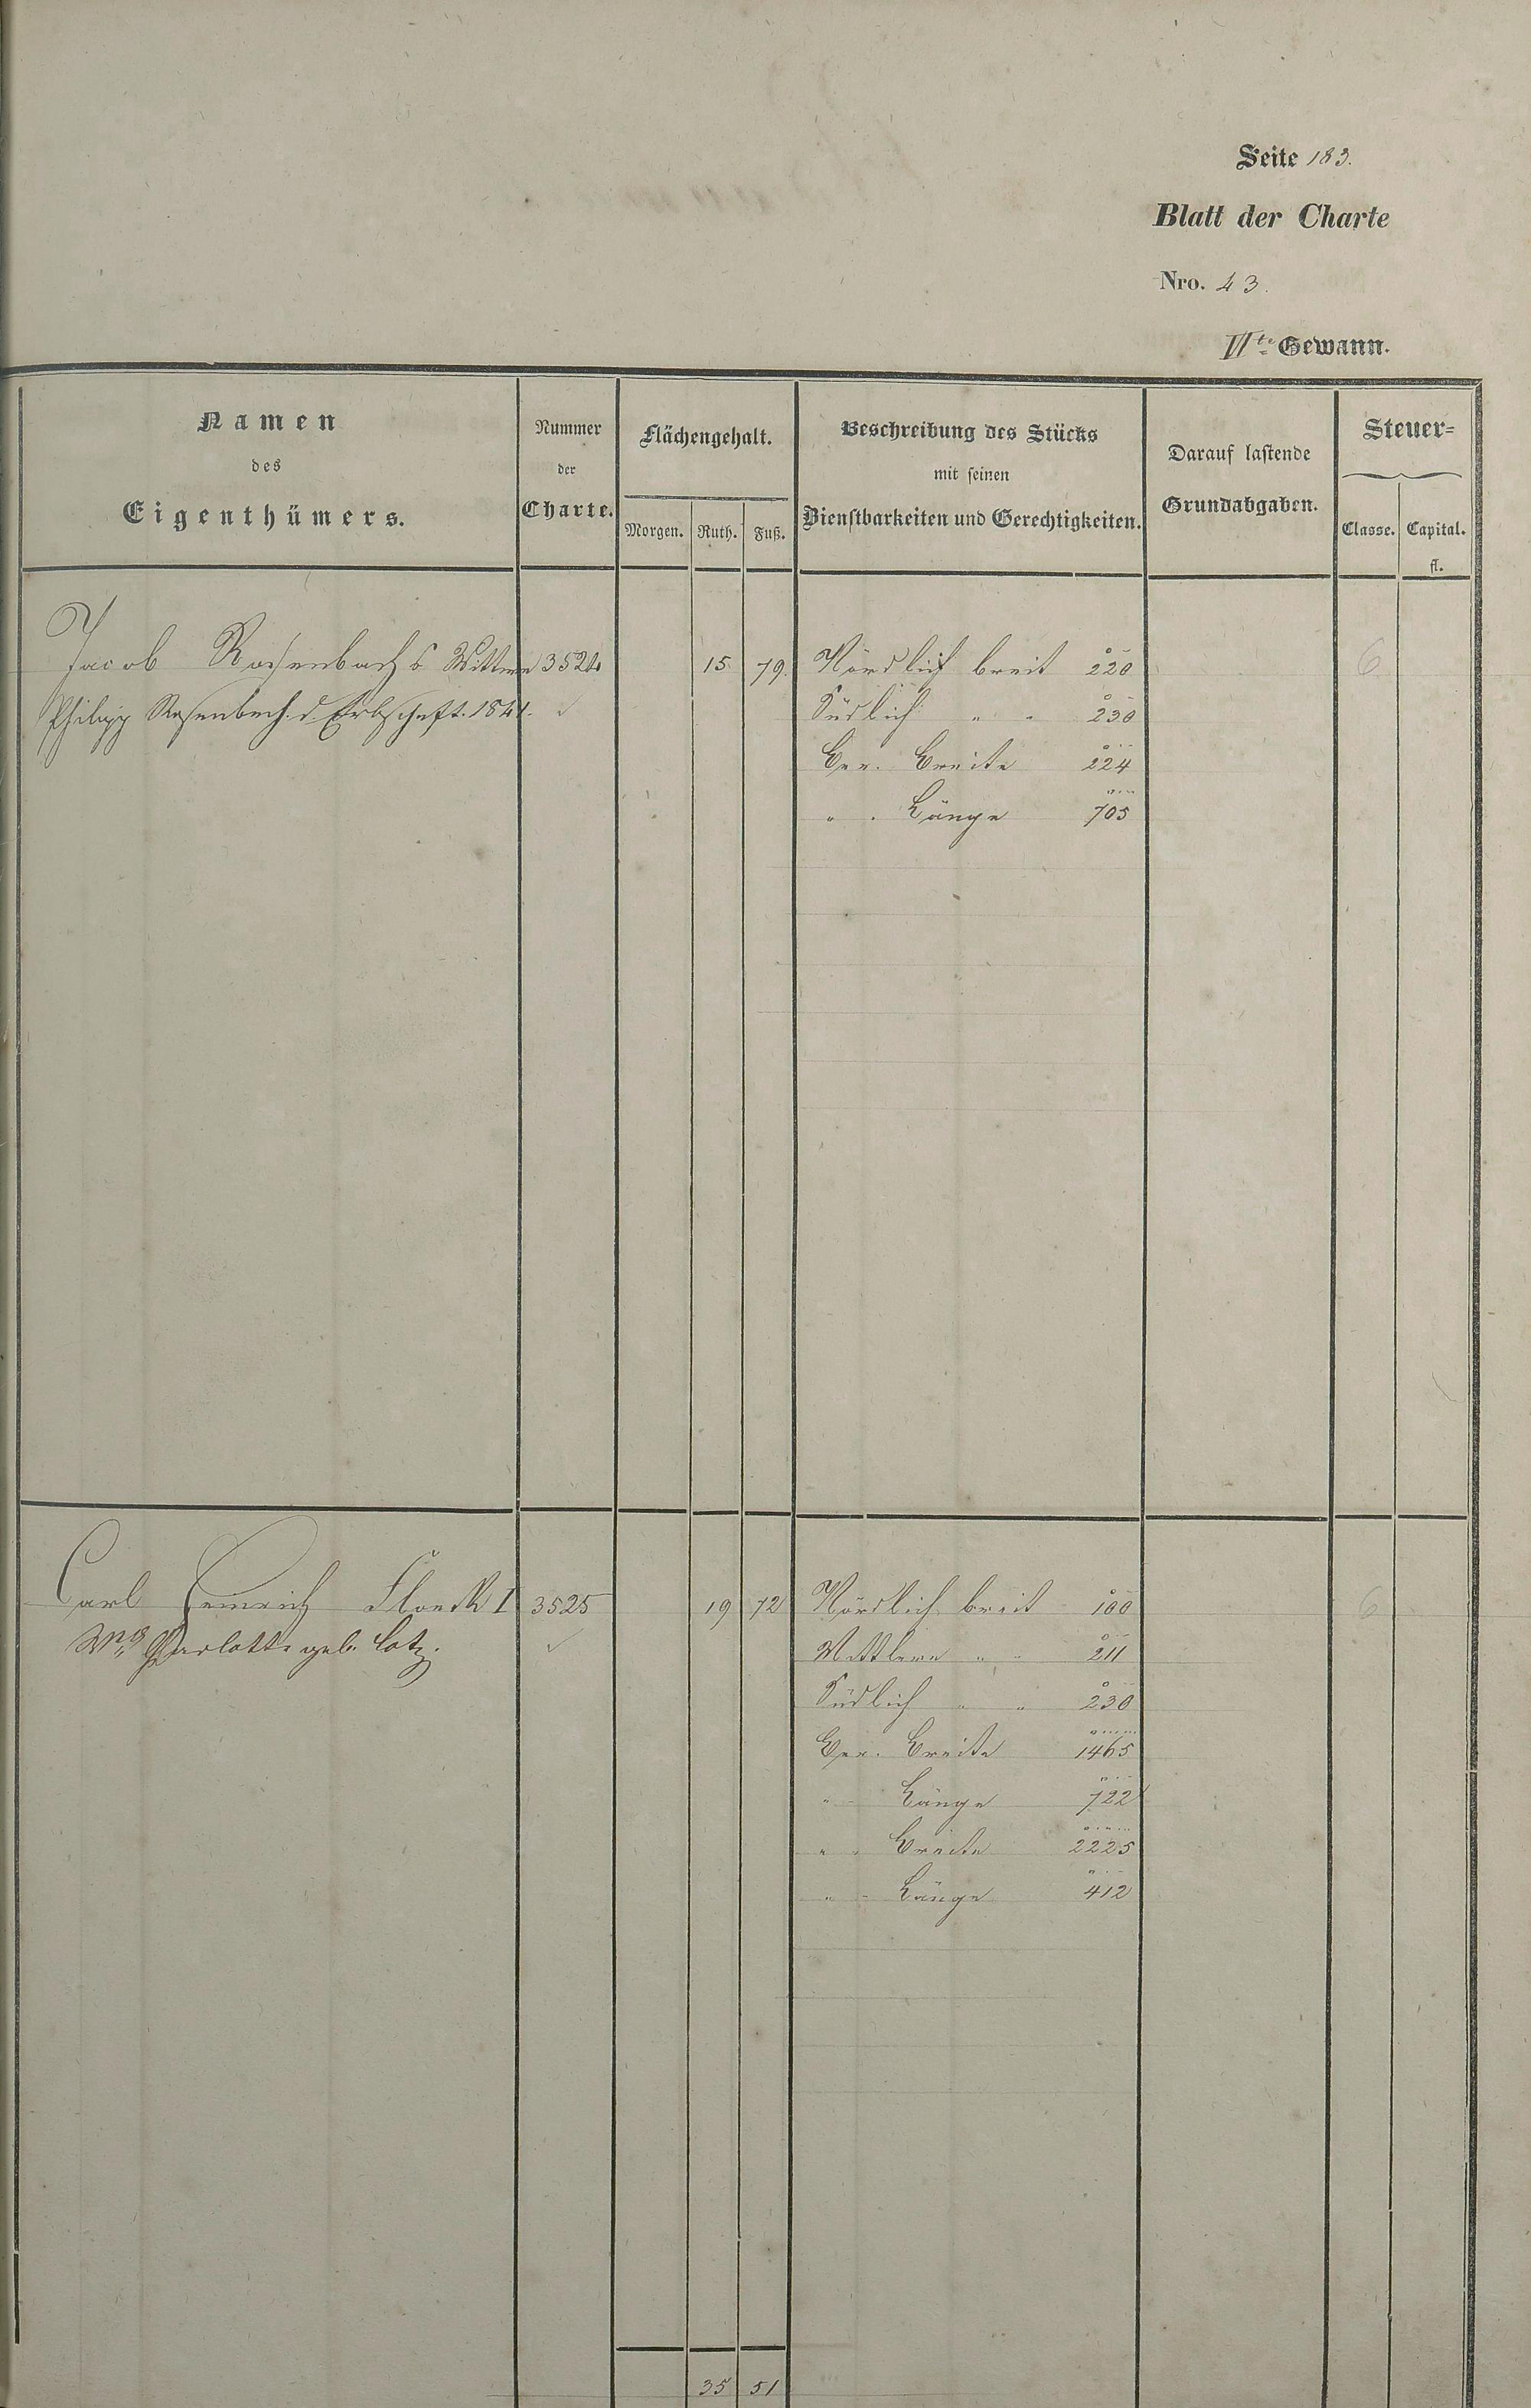 Seite 183.
Blatt der Charte
Nro. 43.
VIte Gewann.
Namen
des
Eigenthümers.
Nummer
der
Charte.
Flächengehalt.
Morgen. Ruth. Fuß.
Beschreibung des Stücks
mit seinen
Dienstbarkeiten und Gerechtigkeiten.
Darauf lastende
Grundabgaben.
Steuer=
Classe. Capital.
fl.
Jacob Rosenbachs Wittwe 3524 15 79. Nördlich breit 220 6
Philipp Rosenbech. d. Erbschaft. 1841. Südlich " " 230
Ber. Breite 224
" . Länge 705
Carl Heinrich Floeck I 3525 19 72 Nördlich breit 100 6
Charlotte geb. Lotz. Mittlere " " 211
Südlich " " 230
Ber. Breite 1465
" " Länge 722
" " Breite 2225
" " Länge 412
35 51